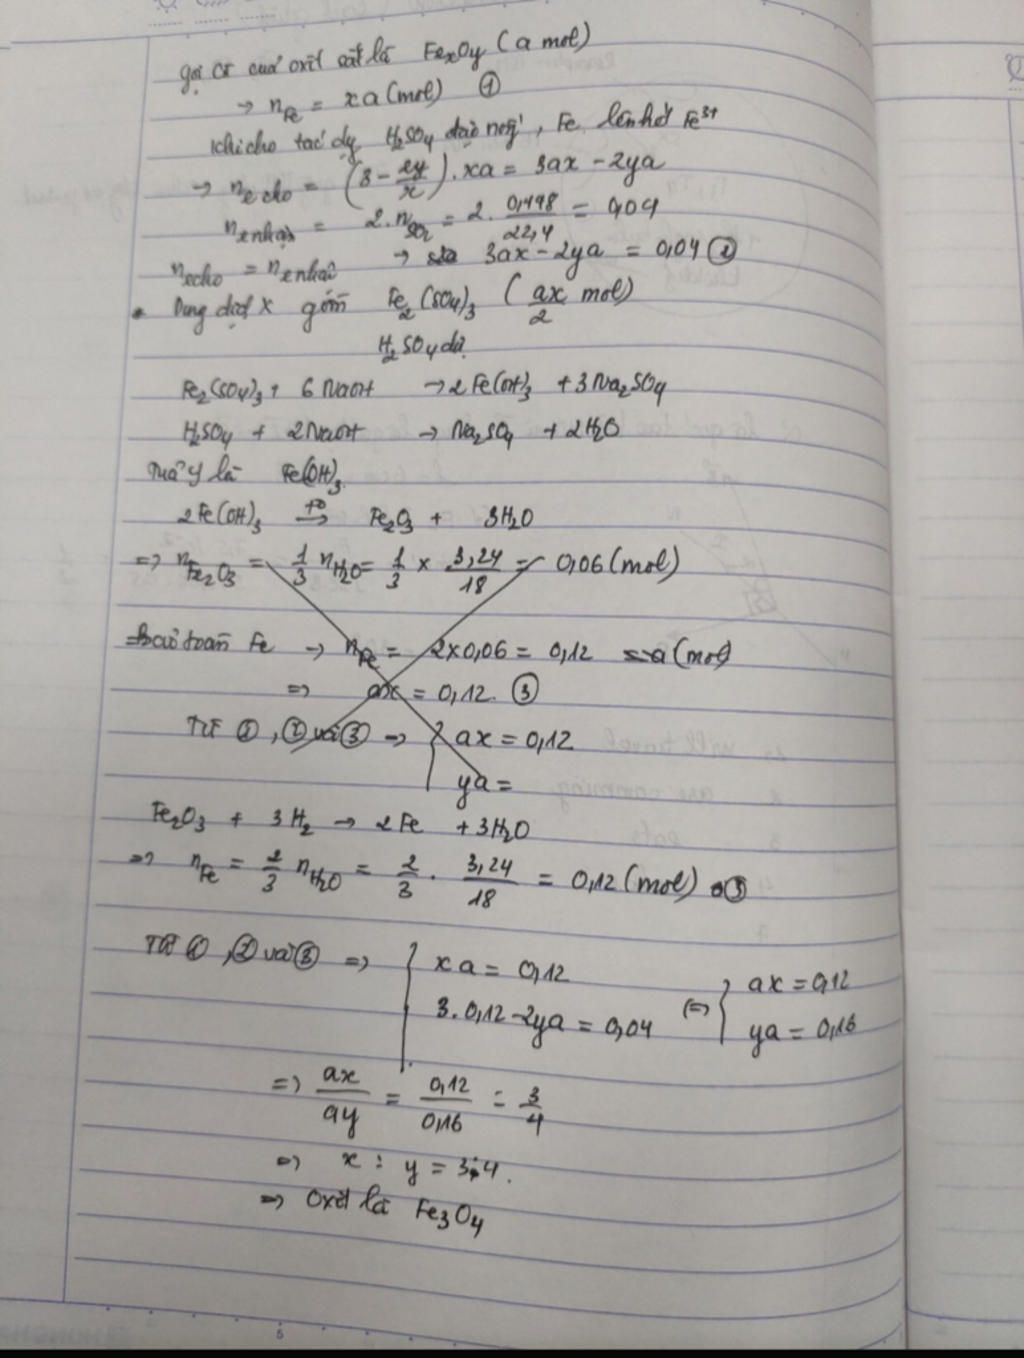 Gọi CT của oxit sắt là FexOy (a mol)
→ nFe = xa (mol) ①
Khi cho tác dụng H2SO4 đặc nóng, Fe lên hết Fe3+
→ ne cho = (3 - 2y/x) . xa = 3ax - 2ya
ne nhận = 2.nSO2 = 2 . 0,448/22,4 = 0,04
ne cho = ne nhận → 3ax - 2ya = 0,04 ②
• Dung dịch X gồm Fe2(SO4)3 (ax/2 mol)
H2SO4 dư
Fe2(SO4)3 + 6NaOH → 2Fe(OH)3 + 3Na2SO4
H2SO4 + 2NaOH → Na2SO4 + 2H2O
Tủa Y là Fe(OH)3
2Fe(OH)3 →(t°) Fe2O3 + 3H2O
=> nFe2O3 = 1/3 nH2O = 1/3 × 3,24/18 = 0,06 (mol)
Bảo toàn Fe → nFe = 2×0,06 = 0,12 = a (mol)
=> ax = 0,12. ③
Từ ①, ② và ③ => { ax = 0,12
ya =
Fe2O3 + 3H2 → 2Fe + 3H2O
=> nFe = 2/3 nH2O = 2/3 . 3,24/18 = 0,12 (mol) ③
Từ ①, ② và ③ => { xa = 0,12 (=> { ax = 0,12
3.0,12 - 2ya = 0,04 ya = 0,16
=> ax/ay = 0,12/0,16 = 3/4
=> x : y = 3:4.
=> Oxit là Fe3O4